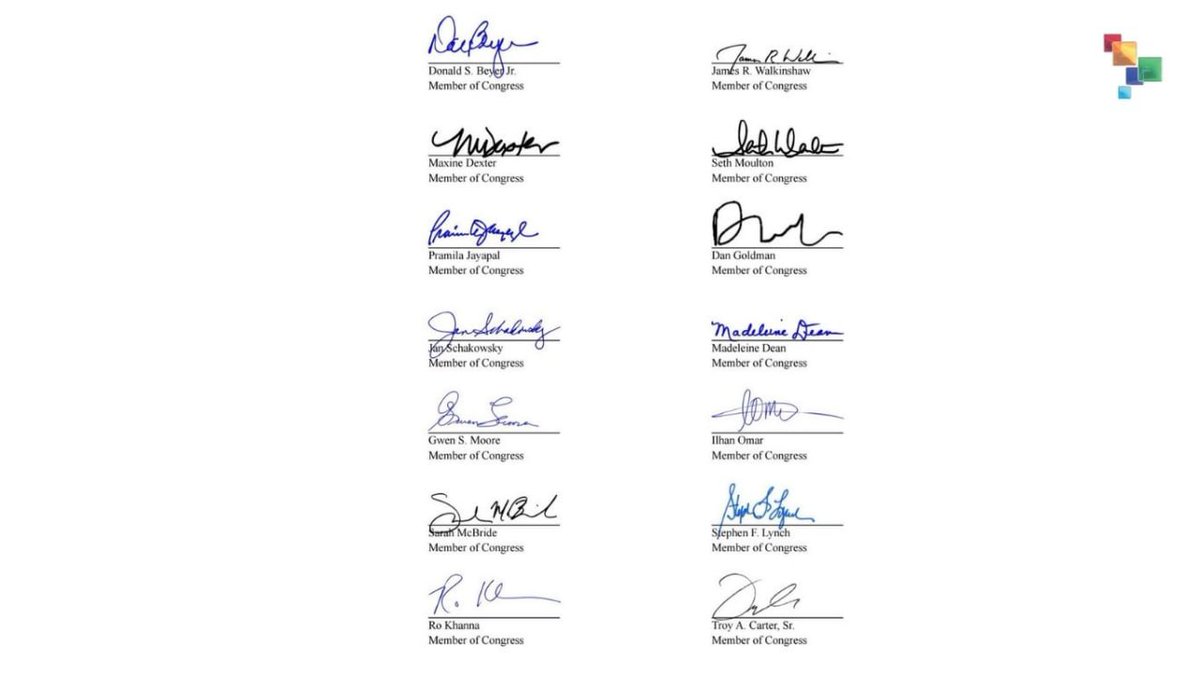 Donald S. Beyer Jr.
Member of Congress
James R. Walkinshaw
Member of Congress
Maxine Dexter
Member of Congress
Seth Moulton
Member of Congress
Pramila Jayapal
Member of Congress
Dan Goldman
Member of Congress
Jan Schakowsky
Jan Schakowsky
Member of Congress
Madeleine Dean
Madeleine Dean
Member of Congress
Gwen S. Moore
Member of Congress
Ilhan Omar
Member of Congress
Sarah McBride
Member of Congress
Stephen F. Lynch
Member of Congress
Ro Khanna
Member of Congress
Troy A. Carter, Sr.
Member of Congress